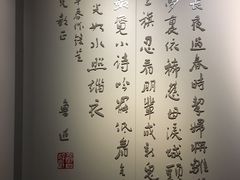 長夜過春時挈婦將雛
夢裏依稀慈母淚城頭
旗忍看朋輩成新鬼
叢覓小詩吟罷低眉無
光如水照緇衣
年春作錄呈
兄教正
魯迅